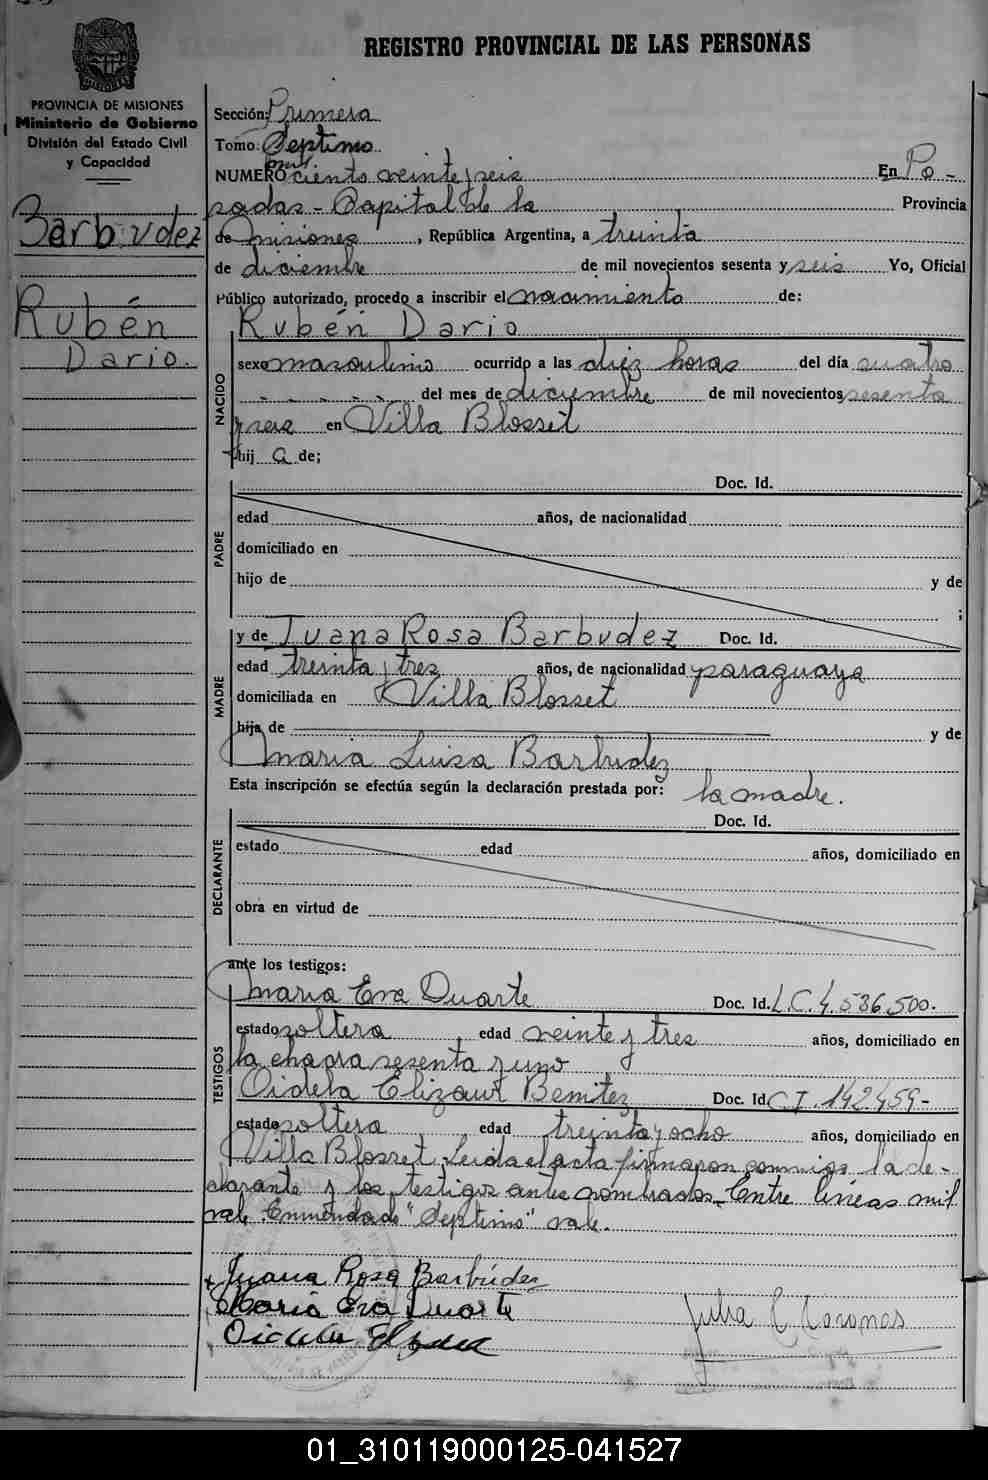 REGISTRO PROVINCIAL DE LAS PERSONAS
PROVINCIA DE MISIONES
Ministerio de Gobierno
División del Estado Civil
y Capacidad
Barbudez
Rubén
Dario.
Sección: Primera
Tomo: Septimo
mil
NUMERO ciento veinte y seis En Po-
sadas - Capital de la Provincia
de Misiones, República Argentina, a treinta
de diciembre de mil novecientos sesenta y seis Yo, Oficial
Público autorizado, procedo a inscribir el nacimiento de:
NACIDO
Rubén Dario
sexo masculino ocurrido a las diez horas del día cuatro
- - - - - del mes de diciembre de mil novecientos sesenta
y seis en Villa Blosset
hij o de;
PADRE
Doc. Id.
edad años, de nacionalidad
domiciliado en
hijo de y de
;
MADRE
y de Juana Rosa Barbudez Doc. Id.
edad treinta y tres años, de nacionalidad paraguaya
domiciliada en Villa Blosset
hija de y de
Maria Luisa Barbudez
Esta inscripción se efectúa según la declaración prestada por: la madre.
DECLARANTE
Doc. Id.
estado edad años, domiciliado en
obra en virtud de
ante los testigos:
TESTIGOS
Maria Eva Duarte Doc. Id. L.C. 4.536.500.
estado soltera edad veinte y tres años, domiciliado en
la chacra sesenta y uno
Benitez Doc. Id. C I. 142.459-
estado soltera edad treinta y ocho años, domiciliado en
Villa Blosset. Leida el acta firmaron conmigo la de-
clarante y los testigos antes nombrados. Entre lineas mil
vale. Enmendado "Septimo" vale.
Juana Rosa Barbúdez
Maria Eva Duarte
Julia C Coronas
01_310119000125-041527